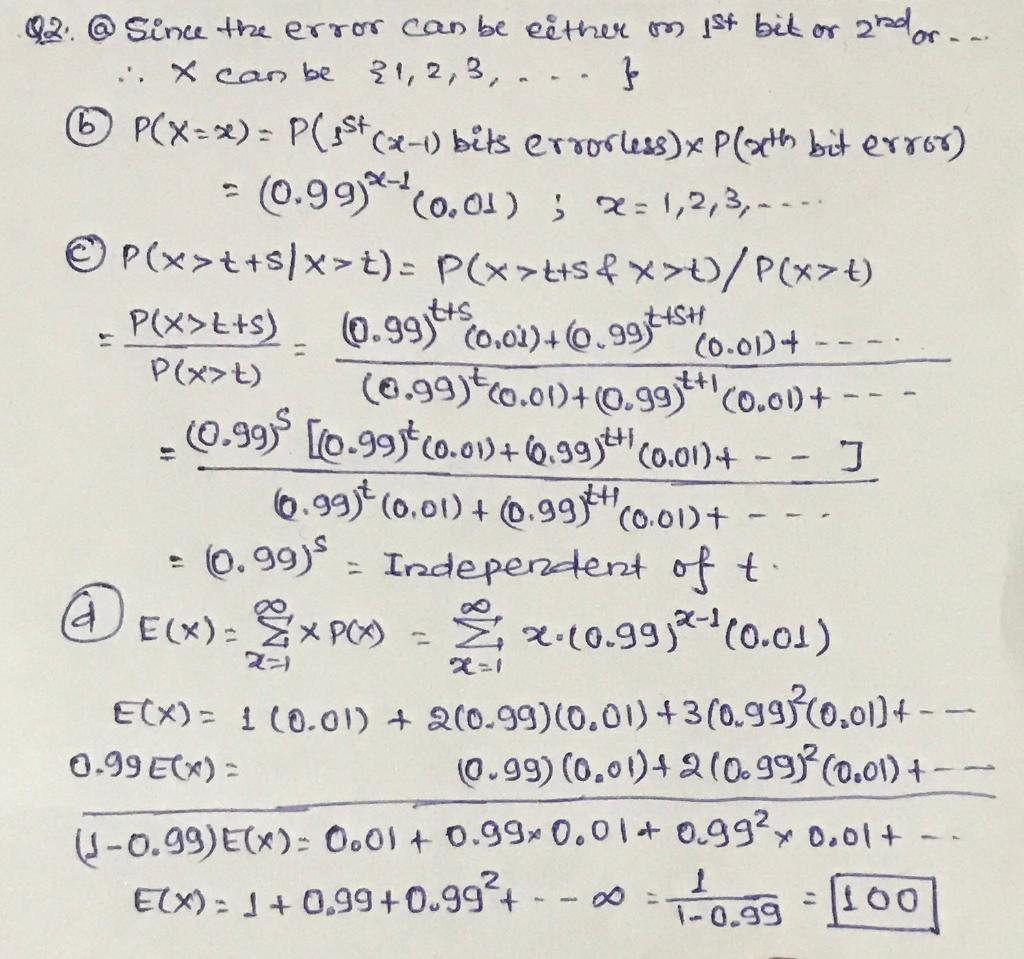 Q2. ⓐ Since the error can be either on 1st bit or 2nd or ---
∴ X can be {1, 2, 3, - - - - }
ⓑ P(X=x) = P(1st (x-1) bits errorless) × P(xth bit error)
= (0.99)^{x-1} (0.01) ; x = 1, 2, 3, ----
ⓒ P(X>t+s | X>t) = P(X>t+s & X>t) / P(X>t)
= P(X>t+s) / P(X>t) = [(0.99)^{t+s} (0.01) + (0.99)^{t+s+1} (0.01) + ----] / [(0.99)^t (0.01) + (0.99)^{t+1} (0.01) + ---]
= (0.99)^s [(0.99)^t (0.01) + (0.99)^{t+1} (0.01) + - - ] / (0.99)^t (0.01) + (0.99)^{t+1} (0.01) + - - -
= (0.99)^s = Independent of t.
ⓓ E(X) = ∑_{x=1}^{∞} x P(X) = ∑_{x=1}^{∞} x·(0.99)^{x-1} (0.01)
E(X) = 1 (0.01) + 2(0.99)(0.01) + 3(0.99)²(0.01) + --
0.99 E(X) = (0.99) (0.01) + 2(0.99)² (0.01) + --
(1-0.99) E(X) = 0.01 + 0.99×0.01 + 0.99² × 0.01 + --
E(X) = 1 + 0.99 + 0.99² + - - ∞ = 1 / 1-0.99 = 100